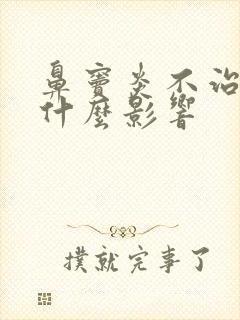 鼻窦炎不治
什麼影響
撲就完事了